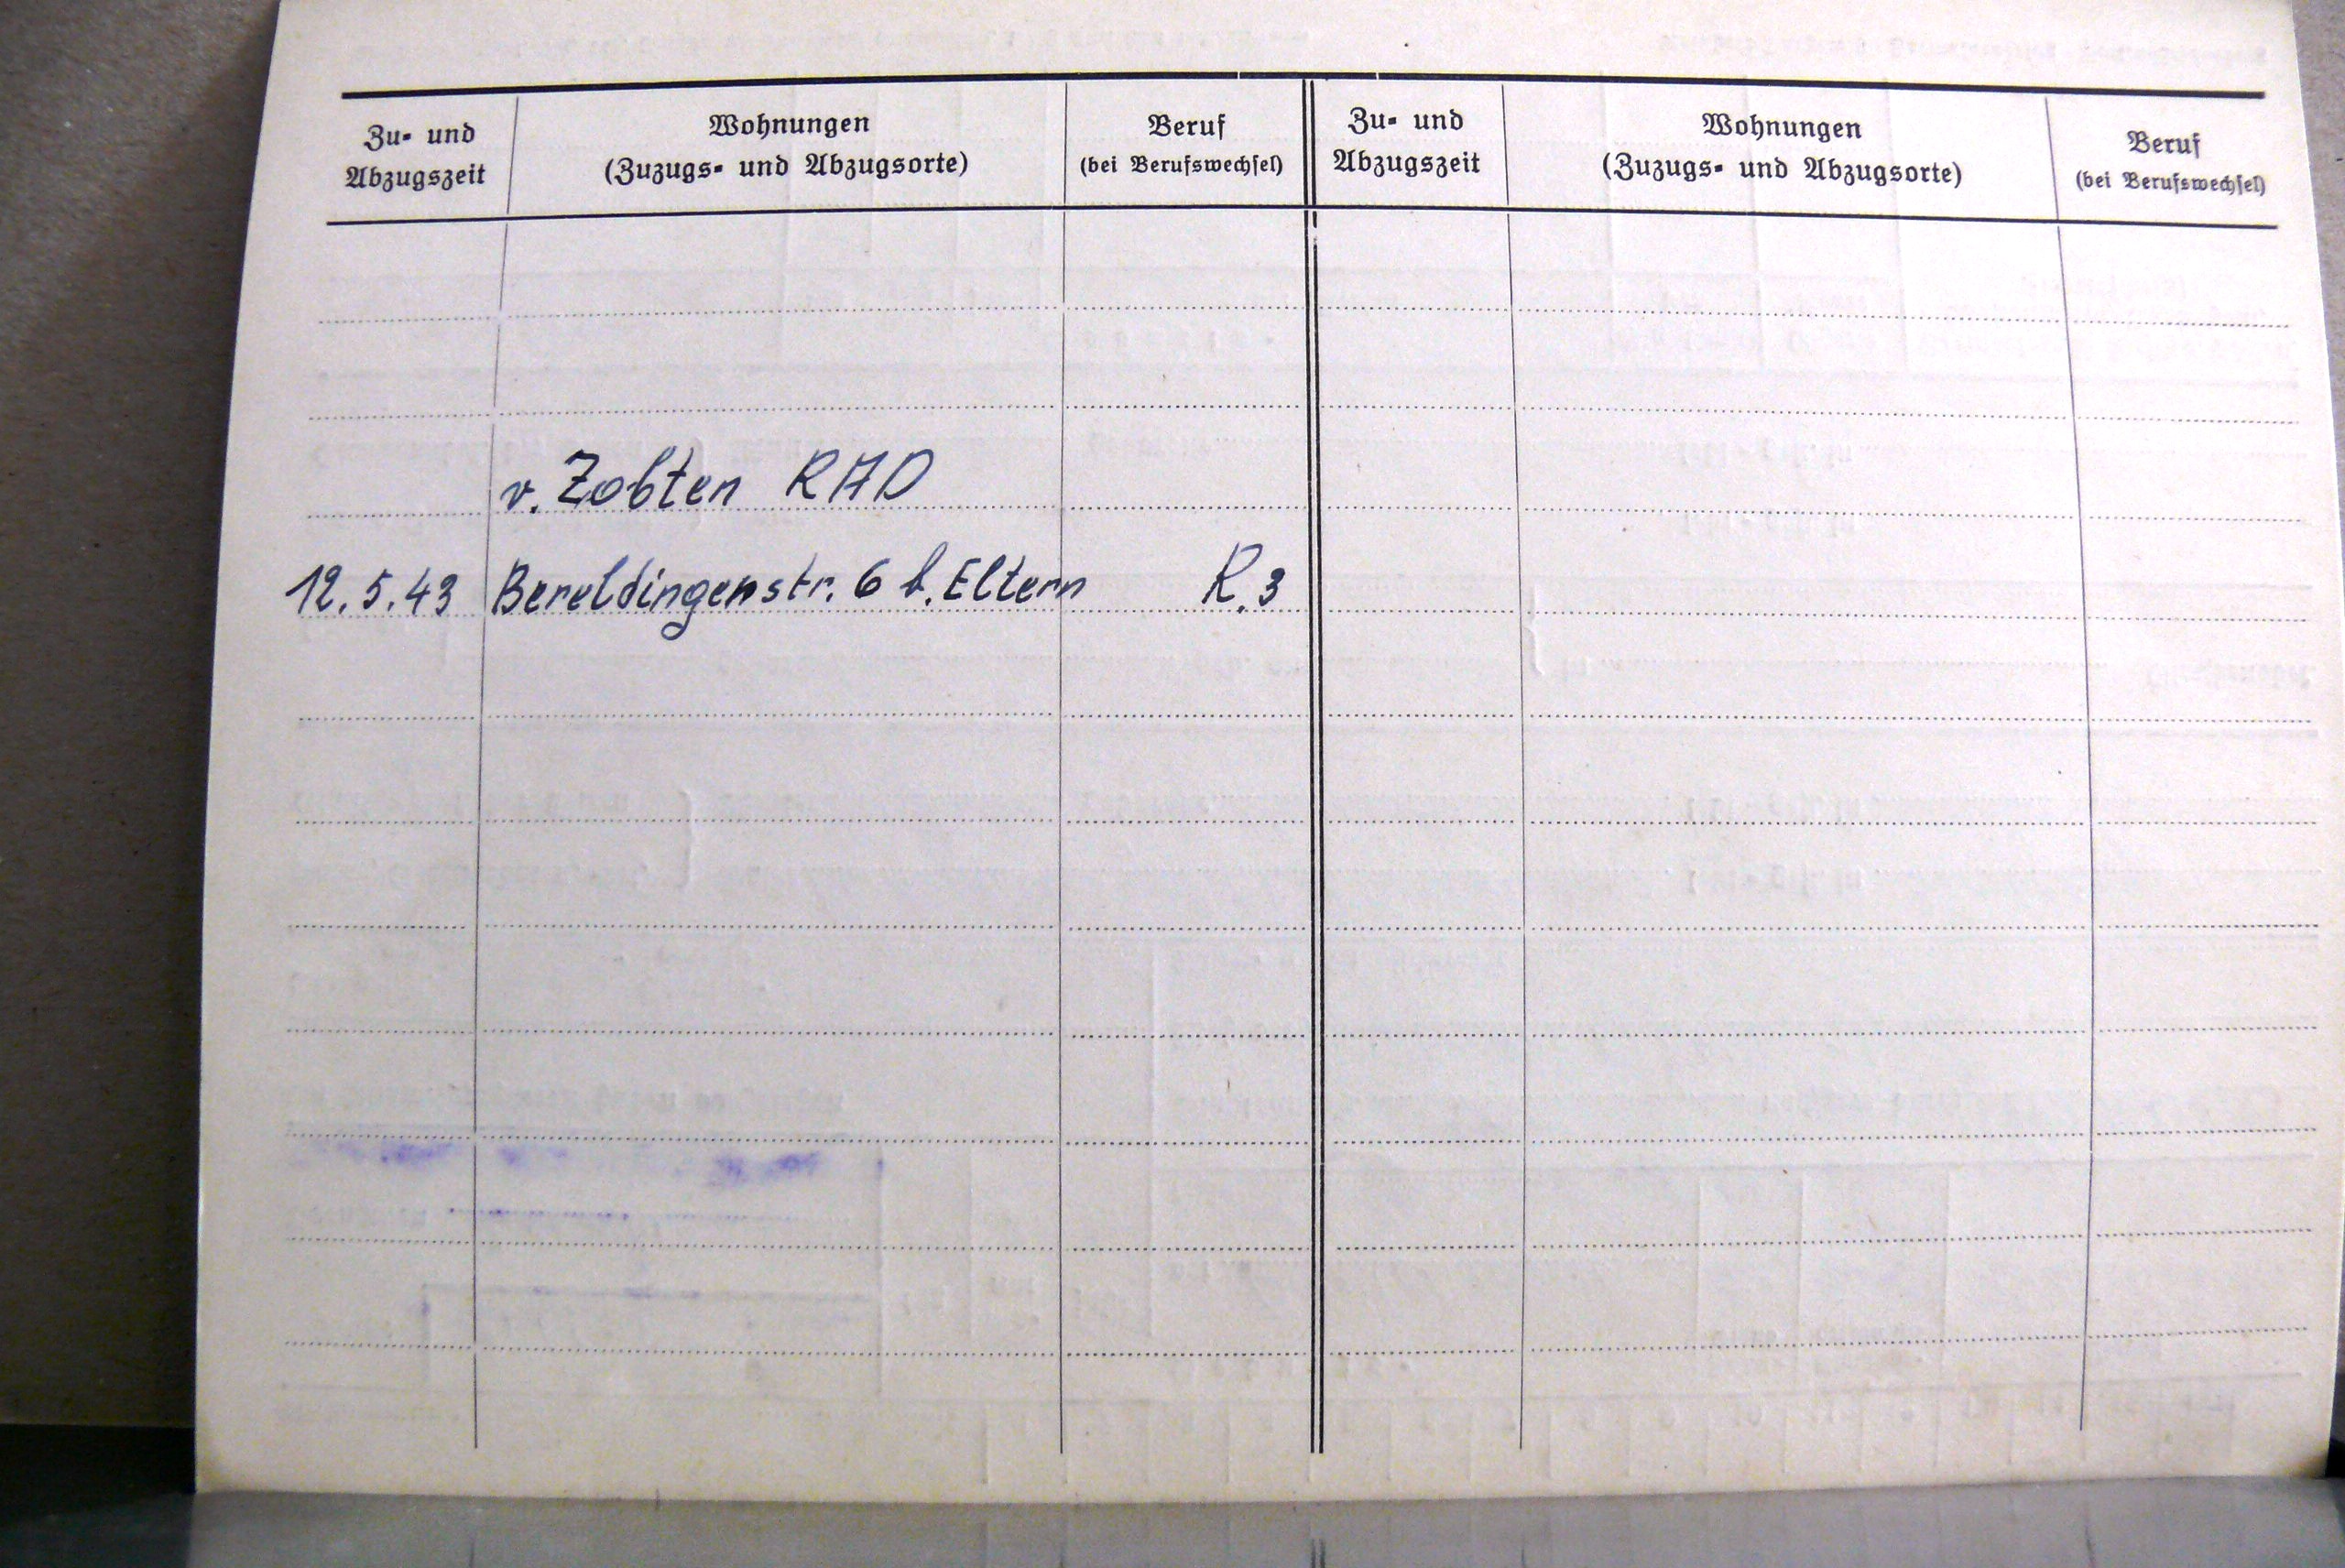 Zu- und Abzugszeit
Wohnungen
(Zuzugs- und Abzugsorte)
Beruf
(bei Berufswechsel)
Zu- und Abzugszeit
Wohnungen
(Zuzugs- und Abzugsorte)
Beruf
(bei Berufswechsel)
v. Zobten RAD
12.5.43 Bereldingenstr. 6 b. Eltern R.3